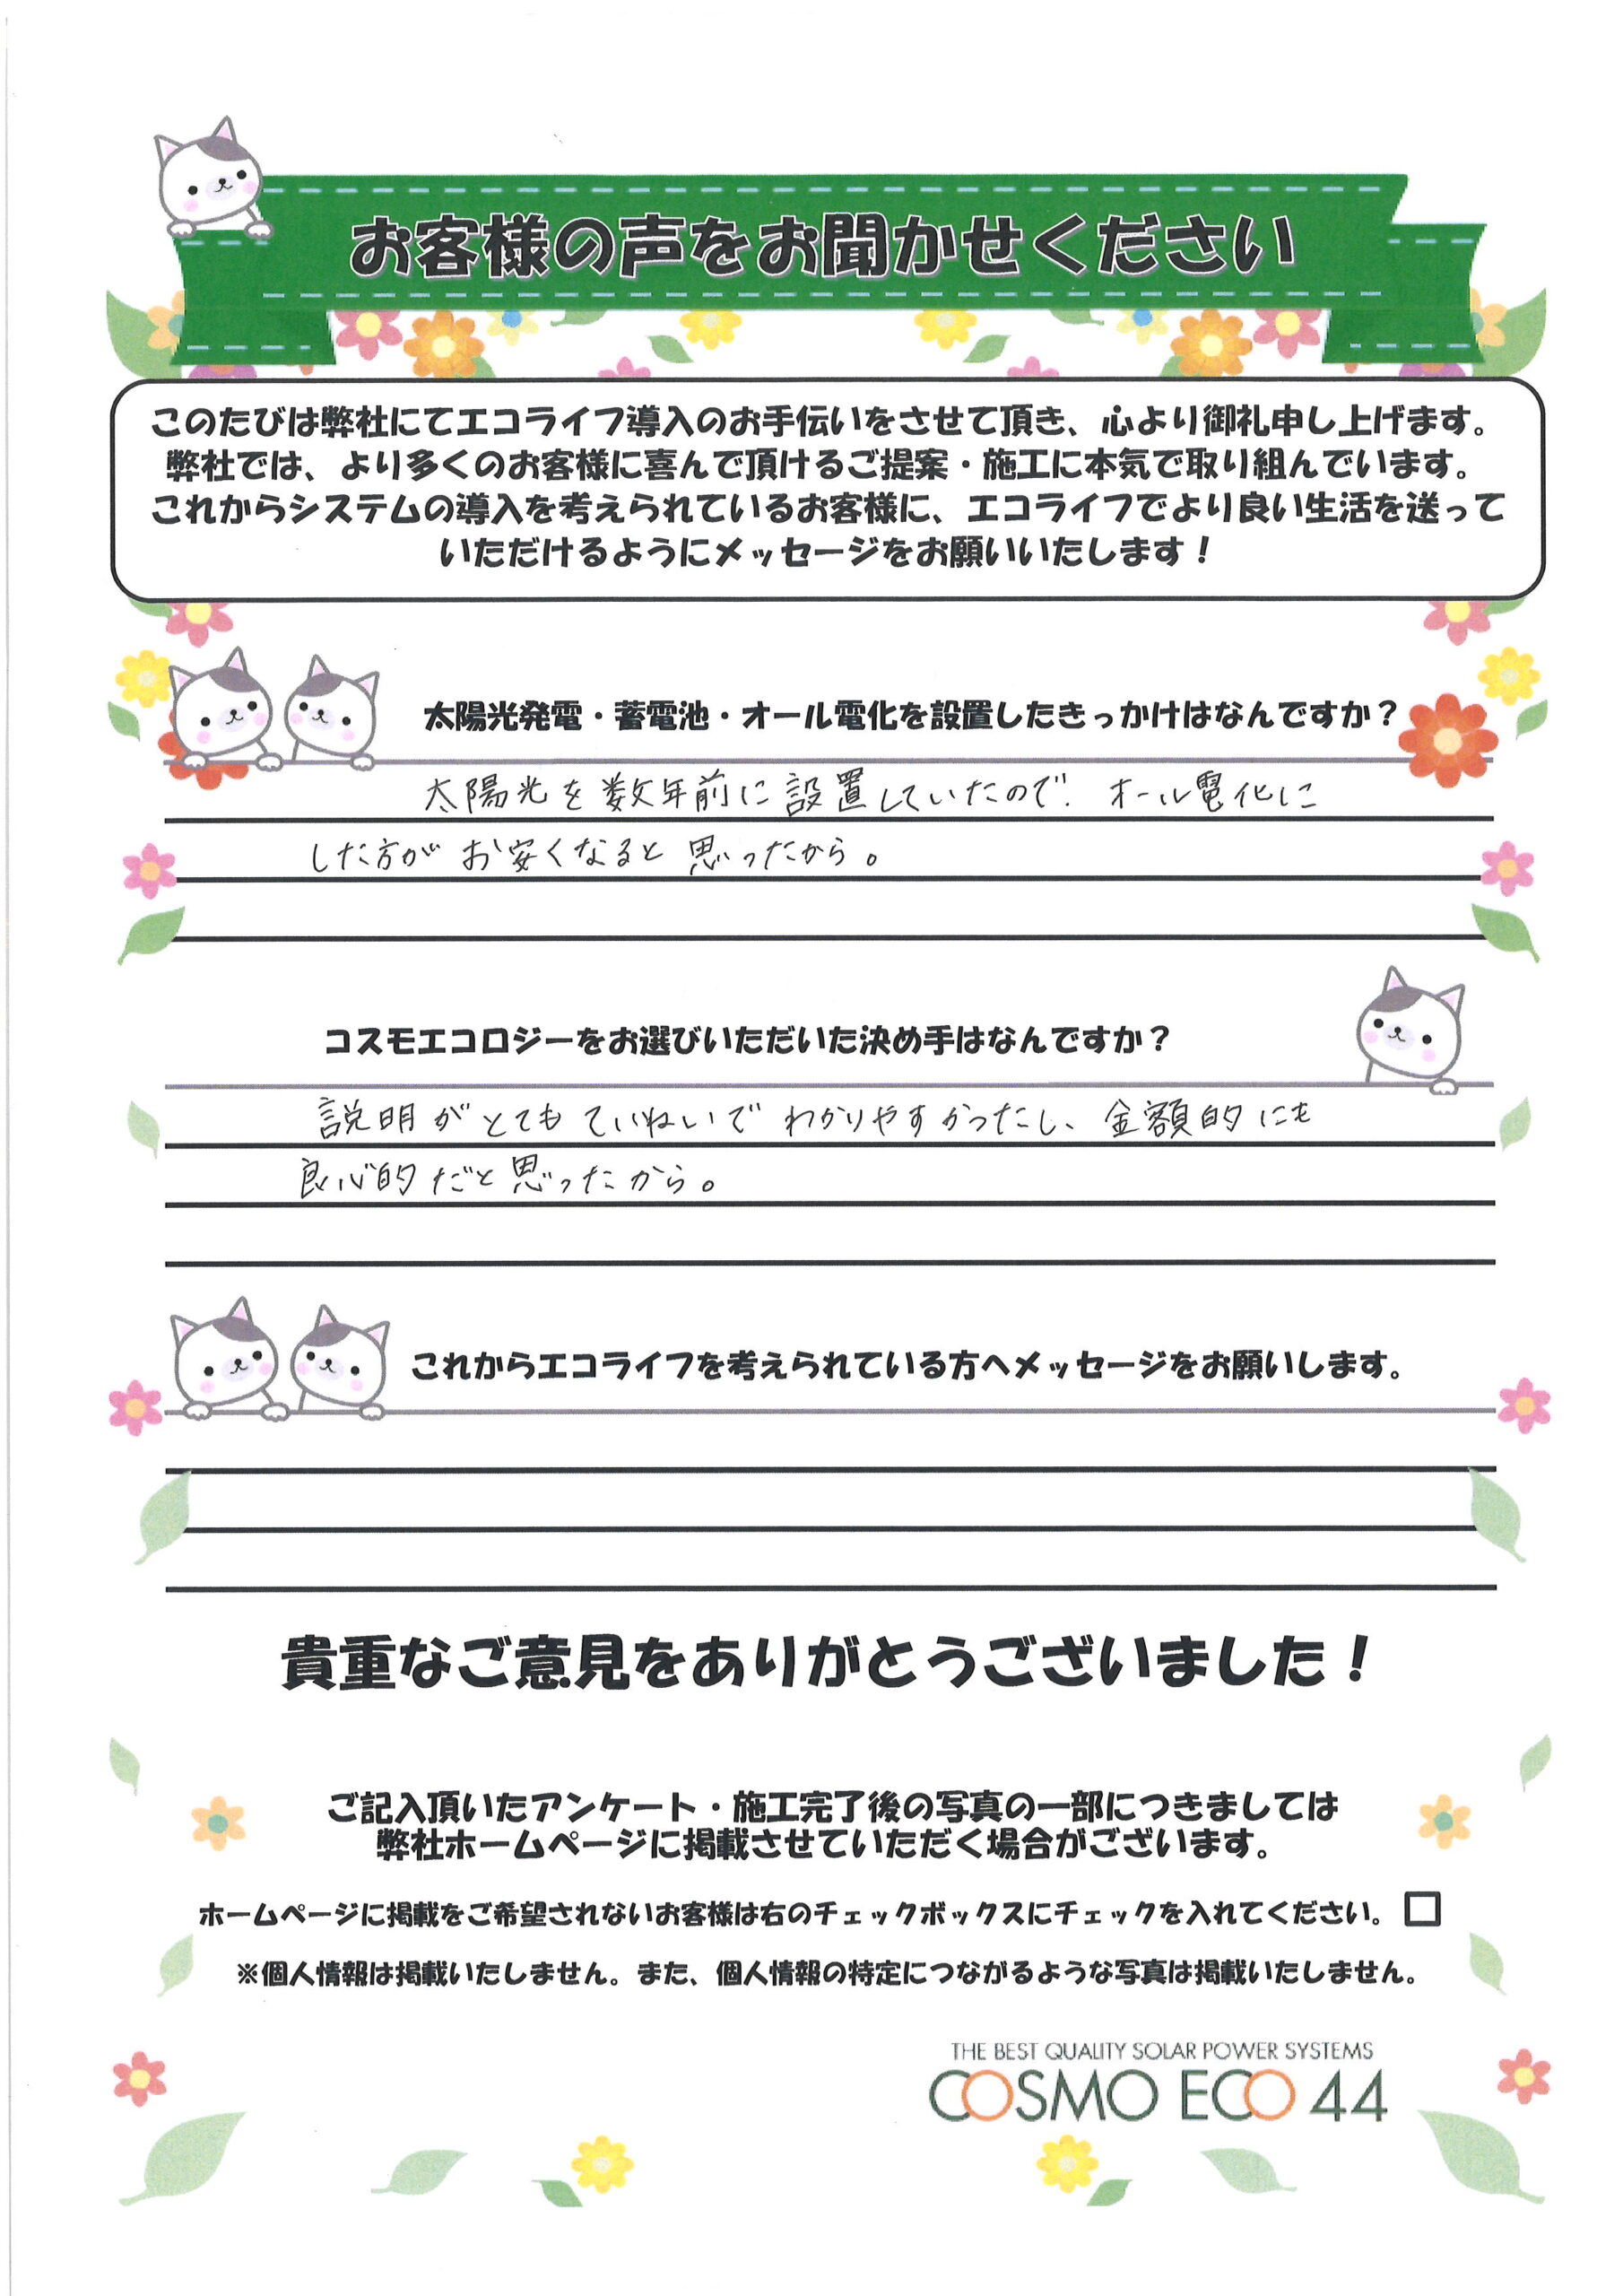 お客様の声をお聞かせください
このたびは弊社にてエコライフ導入のお手伝いをさせて頂き、心より御礼申し上げます。
弊社では、より多くのお客様に喜んで頂けるご提案・施工に本気で取り組んでいます。
これからシステムの導入を考えられているお客様に、エコライフでより良い生活を送って
いただけるようにメッセージをお願いいたします！
太陽光発電・蓄電池・オール電化を設置したきっかけはなんですか？
太陽光を数年前に設置していたので、オール電化に
した方がお安くなると思ったから。
コスモエコロジーをお選びいただいた決め手はなんですか？
説明がとてもていねいでわかりやすかったし、金額的にも
良心的だと思ったから。
これからエコライフを考えられている方へメッセージをお願いします。
貴重なご意見をありがとうございました！
ご記入頂いたアンケート・施工完了後の写真の一部につきましては
弊社ホームページに掲載させていただく場合がございます。
ホームページに掲載をご希望されないお客様は右のチェックボックスにチェックを入れてください。
※個人情報は掲載いたしません。また、個人情報の特定につながるような写真は掲載いたしません。
THE BEST QUALITY SOLAR POWER SYSTEMS
COSMO ECO 44